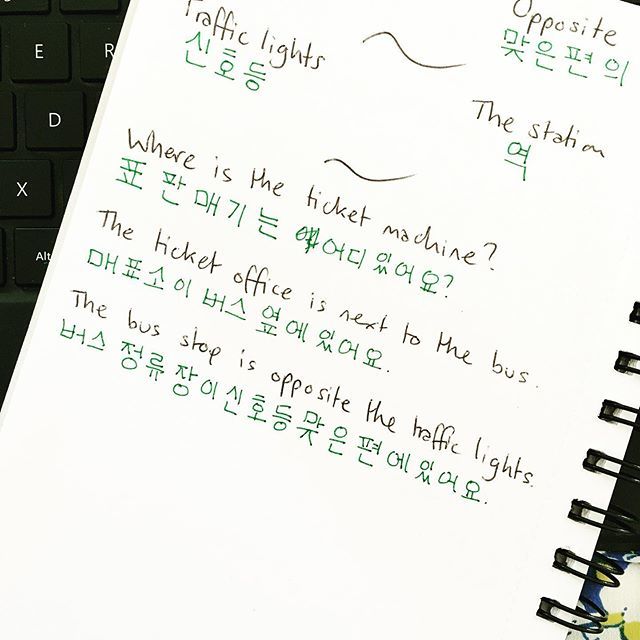 E
R
D
X
Alt
Traffic lights
신호등
Opposite
맞은편의
The station
역
Where is the ticket machine?
표 판매기는 어디 있어요?
The ticket office is next to the bus.
매표소이 버스 옆에 있어요.
The bus stop is opposite the traffic lights.
버스 정류장이 신호등 맞은편에 있어요.